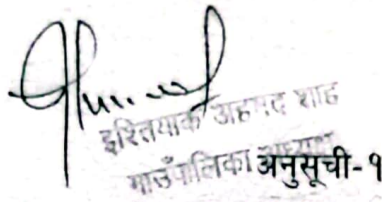 इश्तियाक अहमद शाह
गाउँपालिका अध्यक्ष
अनुसूची-१